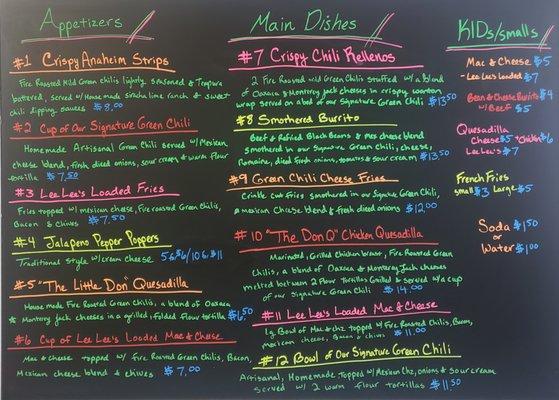 Appetizers
#1 Crispy Anaheim Strips
Fire Roasted Mild Green chilis lightly seasoned & Tempura
battered, served w/ House made siracha lime ranch & sweet
chili dipping sauces $8.00
#2 Cup of Our Signature Green Chili
Homemade Artisanal Green Chili served w/ Mexican
cheese blend, fresh diced onions, sour cream & warm flour
tortilla $7.50
#3 Lee Lee's Loaded Fries
Fries topped w/ mexican cheese, Fire roasted Green Chilis,
Bacon & Chives $7.50
#4 Jalapeno Pepper Poppers
Traditional style w/ cream cheese 5@ $6/10@ $11
#5 "The Little Don" Quesadilla
House made Fire Roasted Green Chilis, a blend of Oaxaca
& Monterey Jack cheeses in a grilled, Folded Flour tortilla $6.50
#6 Cup of Lee Lee's Loaded Mac & Cheese
Mac & Cheese topped w/ Fire Roasted Green Chilis, Bacon,
Mexican cheese blend & chives $7.00
Main Dishes
#7 Crispy Chili Rellenos
2 Fire Roasted Mild Green Chilis stuffed w/ a blend
of Oaxaca & Monterey Jack cheeses in crispy wonton
wrap served on a bed of our Signature Green Chili $13.50
#8 Smothered Burrito
Beef & Refried Black Beans & mex cheese blend
smothered in our Signature Green Chili, cheese,
Romaine, diced fresh onions, tomatoes & sour cream $13.50
#9 Green Chili Cheese Fries
Crinkle Cut Fries smothered in our Signature Green Chili,
a mexican cheese blend & fresh diced onions $12.00
#10 "The Don Q" Chicken Quesadilla
Marinated, Grilled Chicken breast, Fire Roasted Green
Chilis, a blend of Oaxaca & Monterey Jack cheeses
melted between 2 Flour tortillas Grilled & served w/ a cup
of our Signature Green Chili $14.00
#11 Lee Lee's Loaded Mac & Cheese
lg. Bowl of Mac & chz topped w/ Fire Roasted Chilis, Bacon,
mexican cheese, Bacon & chives $11.00
#12 Bowl of Our Signature Green Chili
Artisanal, Homemade Topped w/ Mexican Chz, onions & sour cream
served w/ 2 warm flour tortillas $11.50
KIDs/smalls
Mac & Cheese $5
- Lee Lee's Loaded $7
Bean & Cheese Burrito $4
w/ Beef $5
Quesadilla
Cheese $5 *Chicken $6
Lee Lee's $7
French Fries
small $3 Large $5
Soda $1.50
or
Water $1.00